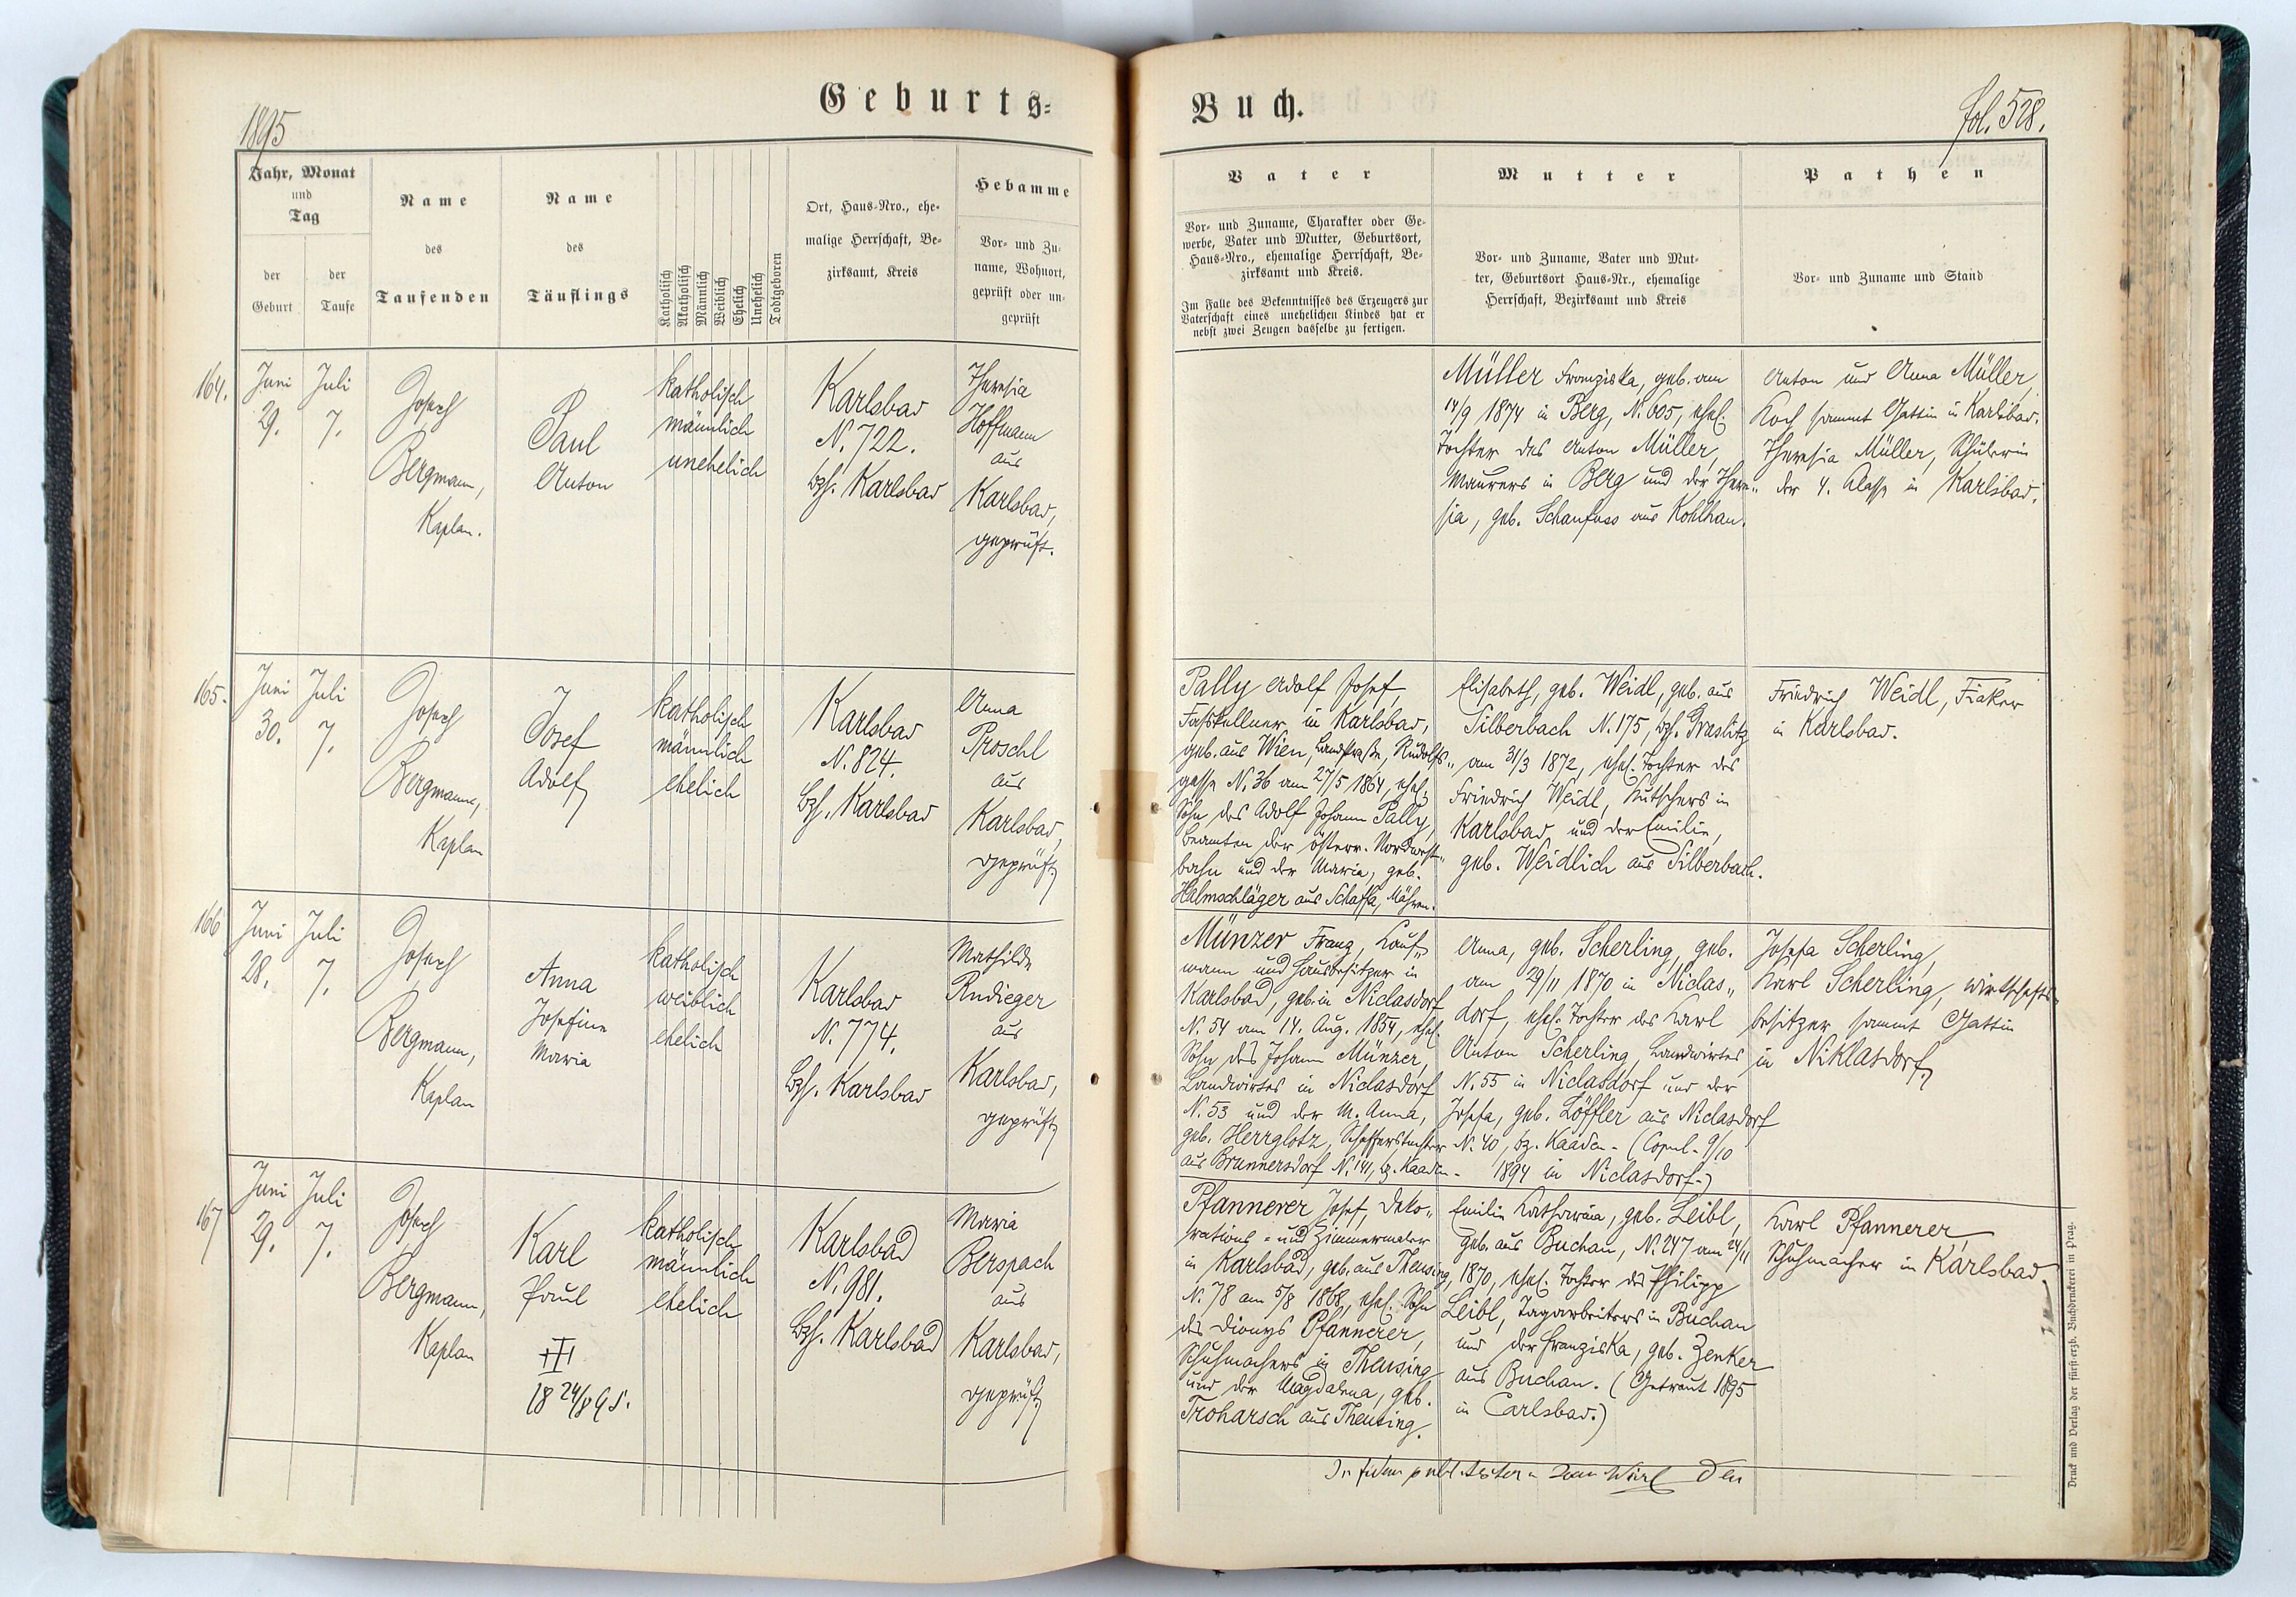 1895
Geburts-
Buch.
fol. 528.
Jahr, Monat
und
Tag
der
Geburt
der
Taufe
Name
des
Taufenden
Name
des
Täuflings
Katholisch
Akatholisch
Männlich
Weiblich
Ehelich
Unehelich
Todtgeboren
Ort, Haus-Nro., ehe-
malige Herrschaft, Be-
zirksamt, Kreis
Hebamme
Vor- und Zu-
name, Wohnort,
geprüft oder un-
geprüft
Vater
Vor- und Zuname, Charakter oder Ge-
werbe, Vater und Mutter, Geburtsort,
Haus-Nro., ehemalige Herrschaft, Be-
zirksamt und Kreis.
Im Falle des Bekenntnisses des Erzeugers zur
Vaterschaft eines unehelichen Kindes hat er
nebst zwei Zeugen dasselbe zu fertigen.
Mutter
Vor- und Zuname, Vater und Mut-
ter, Geburtsort Haus-Nr., ehemalige
Herrschaft, Bezirksamt und Kreis
Pathen
Vor- und Zuname und Stand
164.
Juni
29.
Juli
7.
Josef
Bergmann,
Kaplan.
Paul
Anton
katholisch
männlich
unehelich
Karlsbad
N. 722.
Bzh. Karlsbad
Theresia
Hoffmann
aus
Karlsbad,
geprüft.
Müller Franziska, geb. am
14/9 1874 in Berg, N. 605, ehel.
Tochter des Anton Müller,
Maurers in Berg und der There-
sia, geb. Schanfuss aus Kohlhau.
Anton und Anna Müller,
Koch sammt Gattin in Karlsbad.
Theresia Müller, Schülerin
der 4. Classe in Karlsbad.
165.
Juni
30.
Juli
7.
Josef
Bergmann,
Kaplan
Josef
Adolf
katholisch
männlich
ehelich
Karlsbad
N. 824.
Bzh. Karlsbad
Anna
Proschl
aus
Karlsbad,
geprüft
Pally Adolf Josef,
Fasskellner in Karlsbad,
geb. aus Wien, Landstraße, Rudolfs-
gasse N. 36 am 27/5 1864, ehel.
Sohn des Adolf Johann Pally,
Beamten der österr. Nordwest-
bahn und der Maria, geb.
Halmschläger aus Schaffa, Mähren.
Elisabeth, geb. Weidl, geb. aus
Silberbach N. 175, Bzh. Graslitz
am 31/3 1872, ehel. Tochter des
Friedrich Weidl, Kutschers in
Karlsbad und der Emilie,
geb. Weidlich aus Silberbach.
Friedrich Weidl, Fiaker
in Karlsbad.
166
Juni
28.
Juli
7.
Josef
Bergmann,
Kaplan
Anna
Josefine
Maria
katholisch
weiblich
ehelich
Karlsbad
N. 774.
Bzh. Karlsbad
Mathilde
Rudieger
aus
Karlsbad,
geprüft
Münzer Franz, Kauf-
mann und Hausbesitzer in
Karlsbad, geb. in Niclasdorf
N. 54 am 14. Aug. 1854, ehel.
Sohn des Johann Münzer,
Landwirtes in Niclasdorf
N. 53 und der M. Anna,
geb. Herrglotz, Schefferstochter
aus Brunnersdorf N. 141, bz. Kaaden.
Anna, geb. Scherling, geb.
am 29/11 1870 in Niclas-
dorf, ehel. Tochter des Karl
Anton Scherling, Landwirtes
N. 55 in Niclasdorf und der
Josefa, geb. Löffler aus Niclasdorf
N. 40, bz. Kaaden. (Copul. 9/10
1894 in Niclasdorf.)
Josefa Scherling,
Karl Scherling, Wirtschafts-
besitzer sammt Gattin
in Niklasdorf
167
Juni
29.
Juli
7.
Josef
Bergmann,
Kaplan
Karl
Paul
18 24/8 95.
katholisch
männlich
ehelich
Karlsbad
N. 981.
Bzh. Karlsbad
Maria
Berspach
aus
Karlsbad,
geprüft
Pfannerer Josef, Deko-
rations- und Zimmermaler
in Karlsbad, geb. aus Theusing,
N. 78 am 5/8 1868, ehel. Sohn
des Dionys Pfannerer,
Schuhmachers in Theusing
und der Magdalena, geb.
Troharsch aus Theusing.
Emilie Katharina, geb. Leibl,
geb. aus Buchau, N. 247 am 24/11
1870, ehel. Tochter des Philipp
Leibl, Tagarbeiters in Buchau
und der Franziska, geb. Zenker
aus Buchau. (Getraut 1895
in Carlsbad.)
Karl Pfannerer,
Schuhmacher in Karlsbad.
Druck und Verlag der fürst-erzb. Buchdruckerei in Prag.